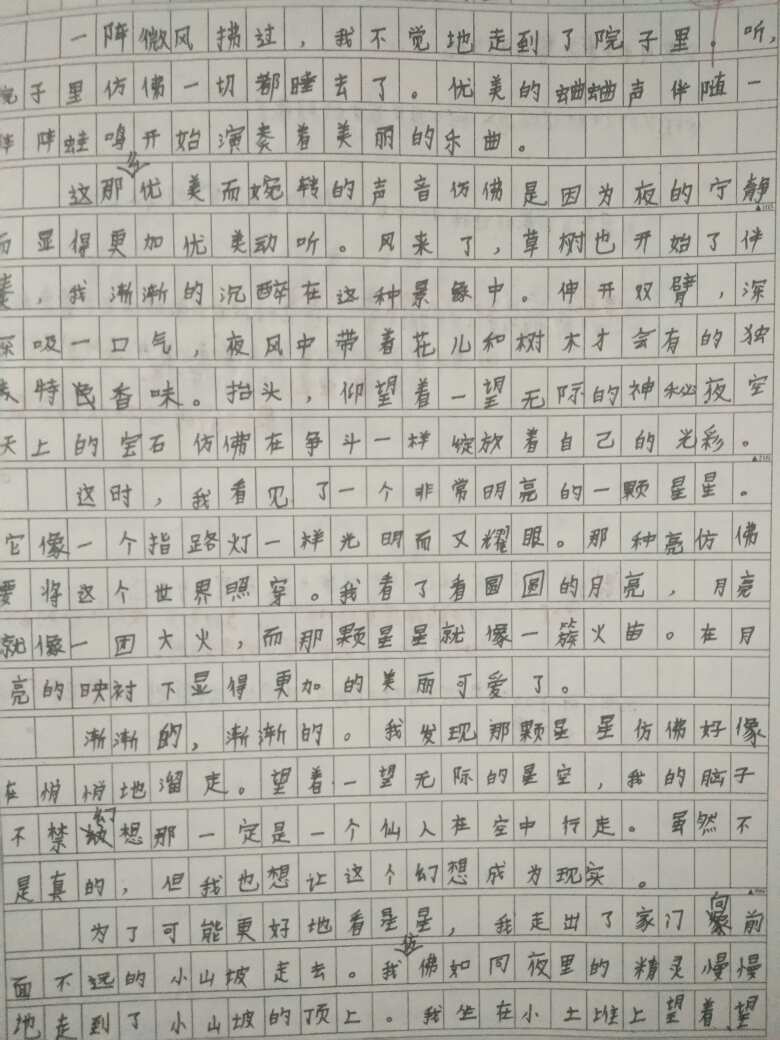 一阵微风拂过，我不觉地走到了院子里，听，
院子里仿佛一切都睡去了。优美的蛐蛐声伴随一
阵阵蛙鸣开始演奏着美丽的乐曲。
这那么优美而婉转的声音仿佛是因为夜的宁静
而显得更加优美动听。风来了，草树也开始了伴
奏，我渐渐的沉醉在这种景象中。伸开双臂，深
深吸一口气，夜风中带着花儿和树木才会有的独
特色香味。抬头，仰望着一望无际的神秘夜空
天上的宝石仿佛在争斗一样绽放着自己的光彩。
这时，我看见了一个非常明亮的一颗星星。
它像一个指路灯一样光明而又耀眼。那种亮仿佛
要将这个世界照穿。我看了看圆圆的月亮，月亮
就像一团大火，而那颗星星就像一簇火苗。在月
亮的映衬下显得更加的美丽可爱了。
渐渐的，渐渐的。我发现那颗星星仿佛好像
在悄悄地溜走。望着一望无际的星空，我的脑子
不禁幻想那一定是一个仙人在空中行走。虽然不
是真的，但我也想让这个幻想成为现实。
为了可能更好地看星星，我走出了家门向前
面不远的小山坡走去。我仿佛如同夜里的精灵慢慢
地走到了小山坡的顶上。我坐在小土堆上望着望